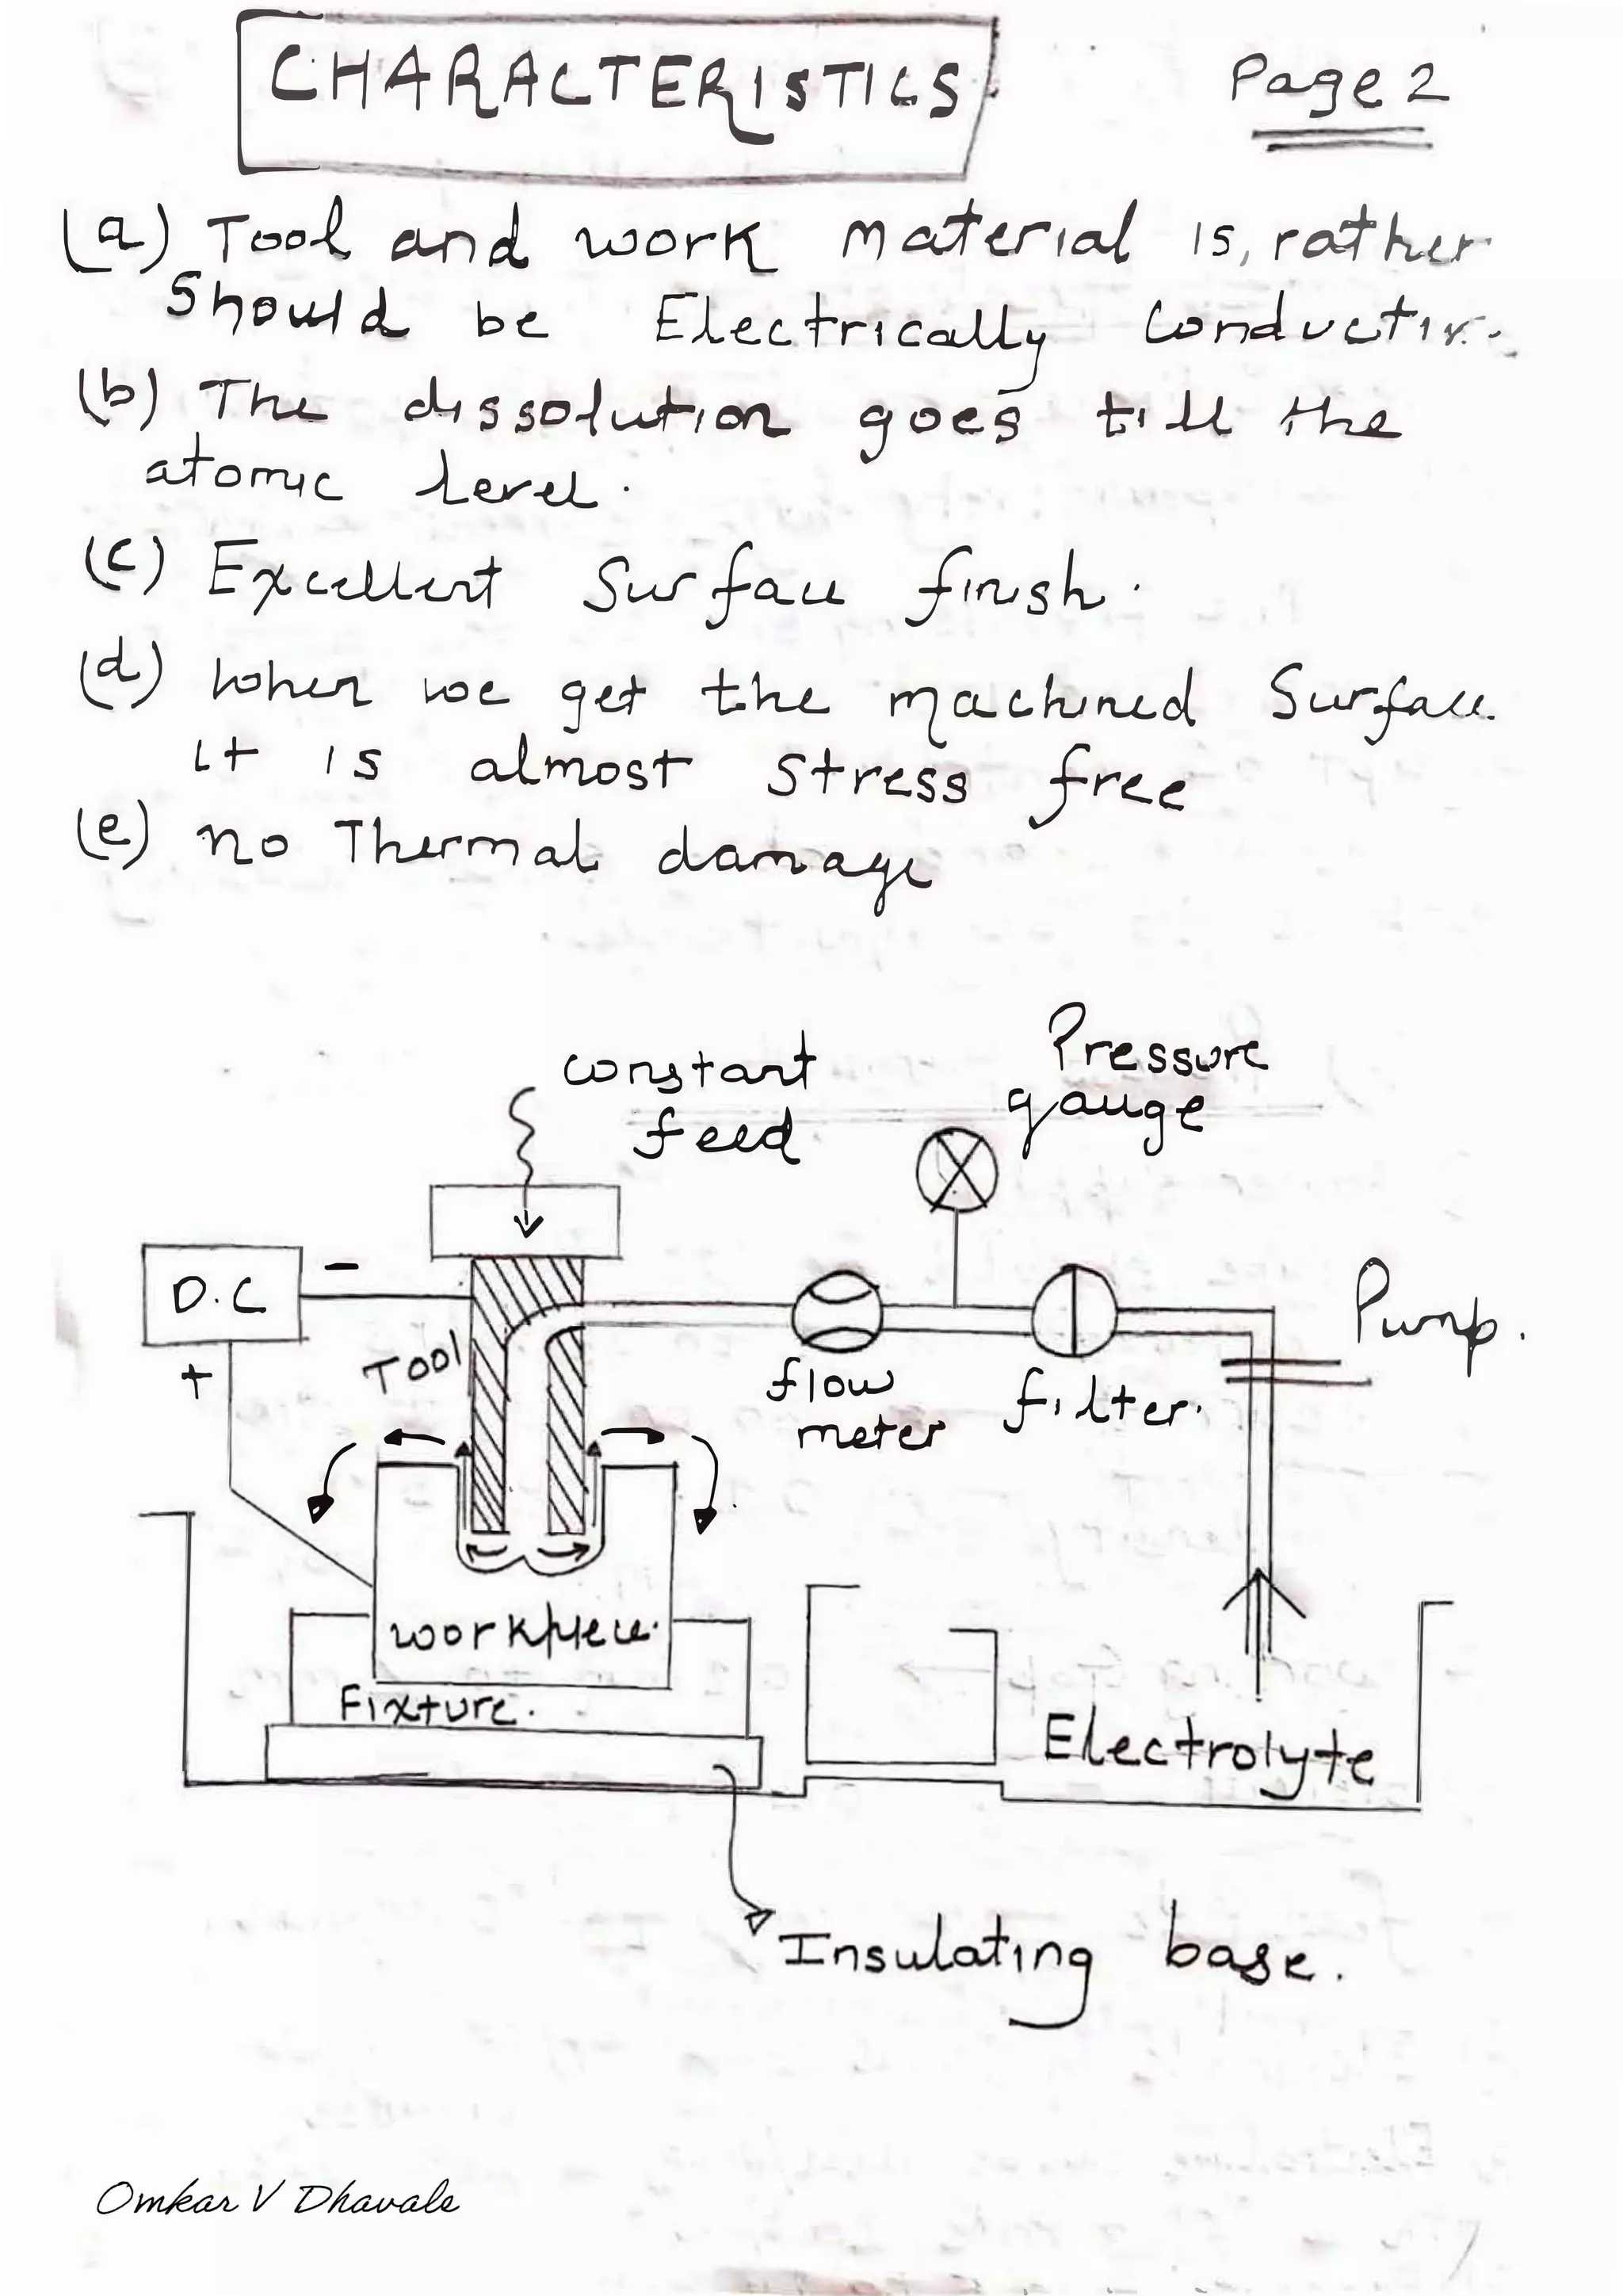 CHARACTERISTICS
Page 2
(a) Tool and work material is, rather
should be Electrically conductive.
(b) The dissolution goes till the
atomic level.
(c) Excellent Surface finish.
(d) When we get the machined Surface.
it is almost stress free
(e) no Thermal damage
constant
feed
Pressure
gauge
D.C
-
+
Tool
flow
meter
filter.
Pump.
workpiece.
Fixture.
Electrolyte
Insulating base.
Omkar V Dhavale